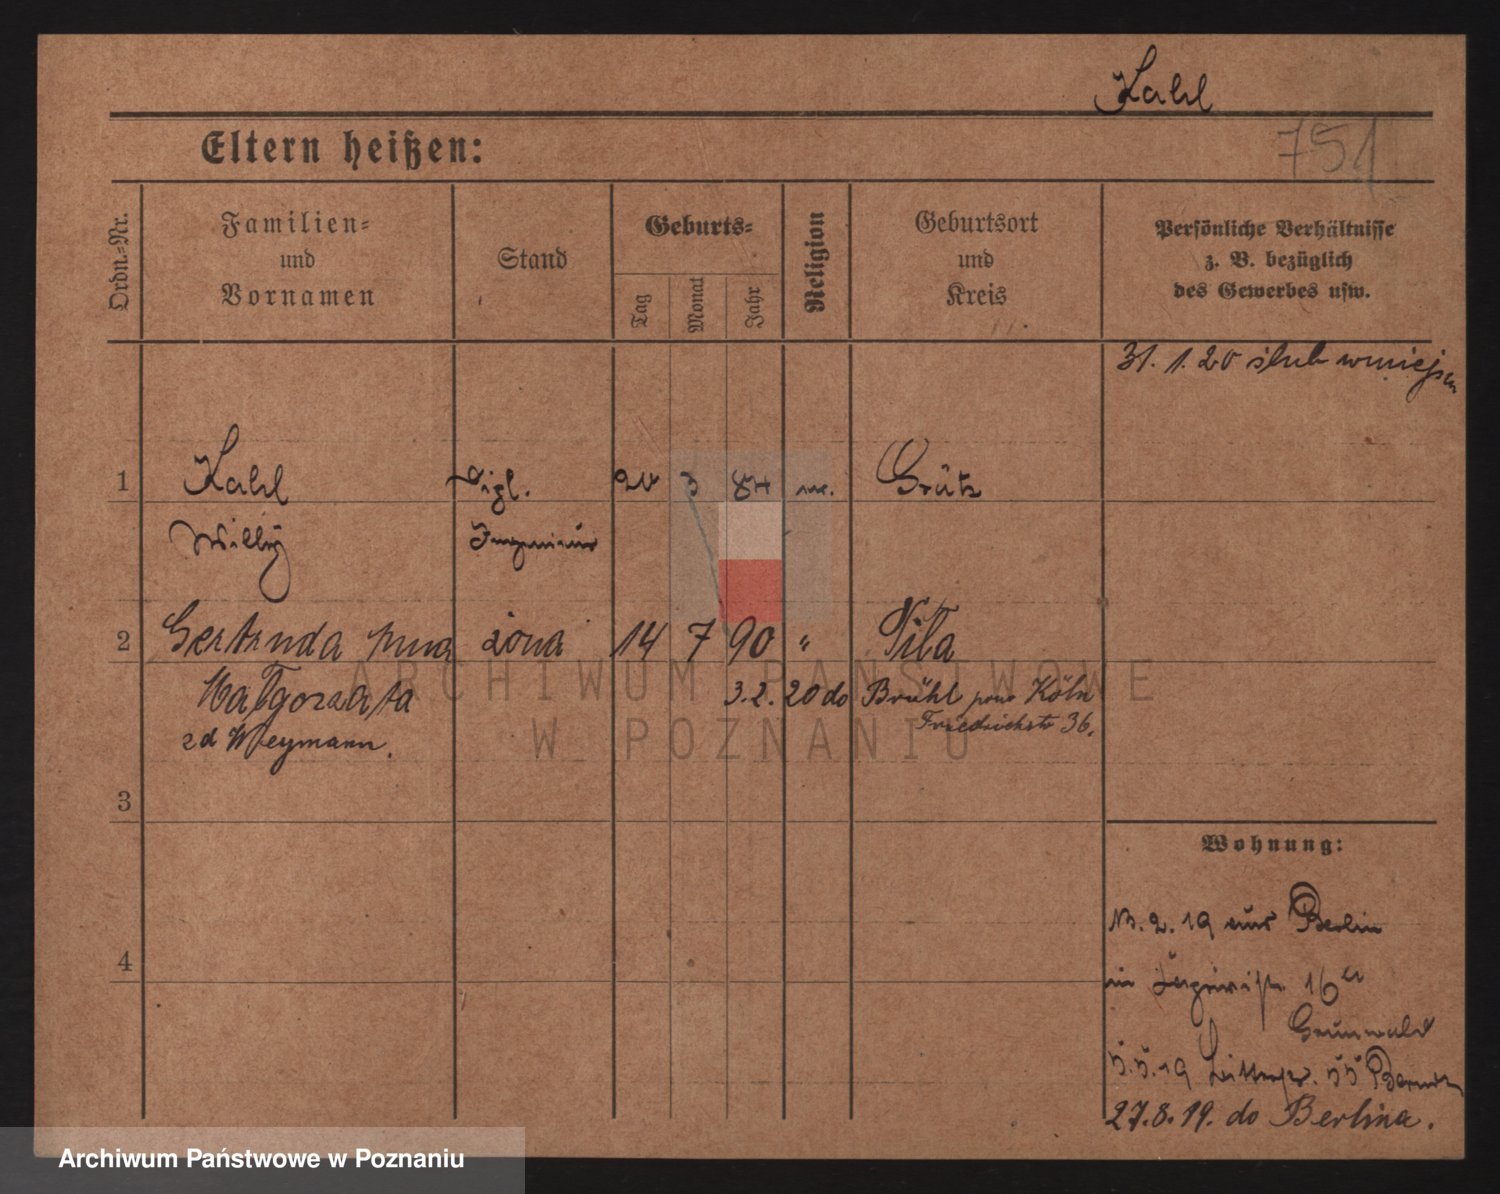 Kahl
751
Eltern heißen:
Ordn.-Nr.
Familien-
und
Vornamen
Stand
Geburts-
Tag
Monat
Jahr
Religion
Geburtsort
und
Kreis
Persönliche Verhältnisse
z. B. bezüglich
des Gewerbes usw.
31. 1. 20 ślub w miejscu
1
Kahl
Dipl.
20 3 84
Grätz
Willy
Ingenieur
2
Gertruda Anna
żona
14 7 90 "
Piła
Małgorzata
3. 2. 20 do Brühl pow Köln
Friedrichstr 36.
zd Weymann.
3
4
Wohnung:
2. 19 aus Berlin
in 16a
Grunwald
5. 5. 19 55
27. 8. 19. do Berlina.
ARCHIWUM PAŃSTWOWE
W POZNANIU
Archiwum Państwowe w Poznaniu